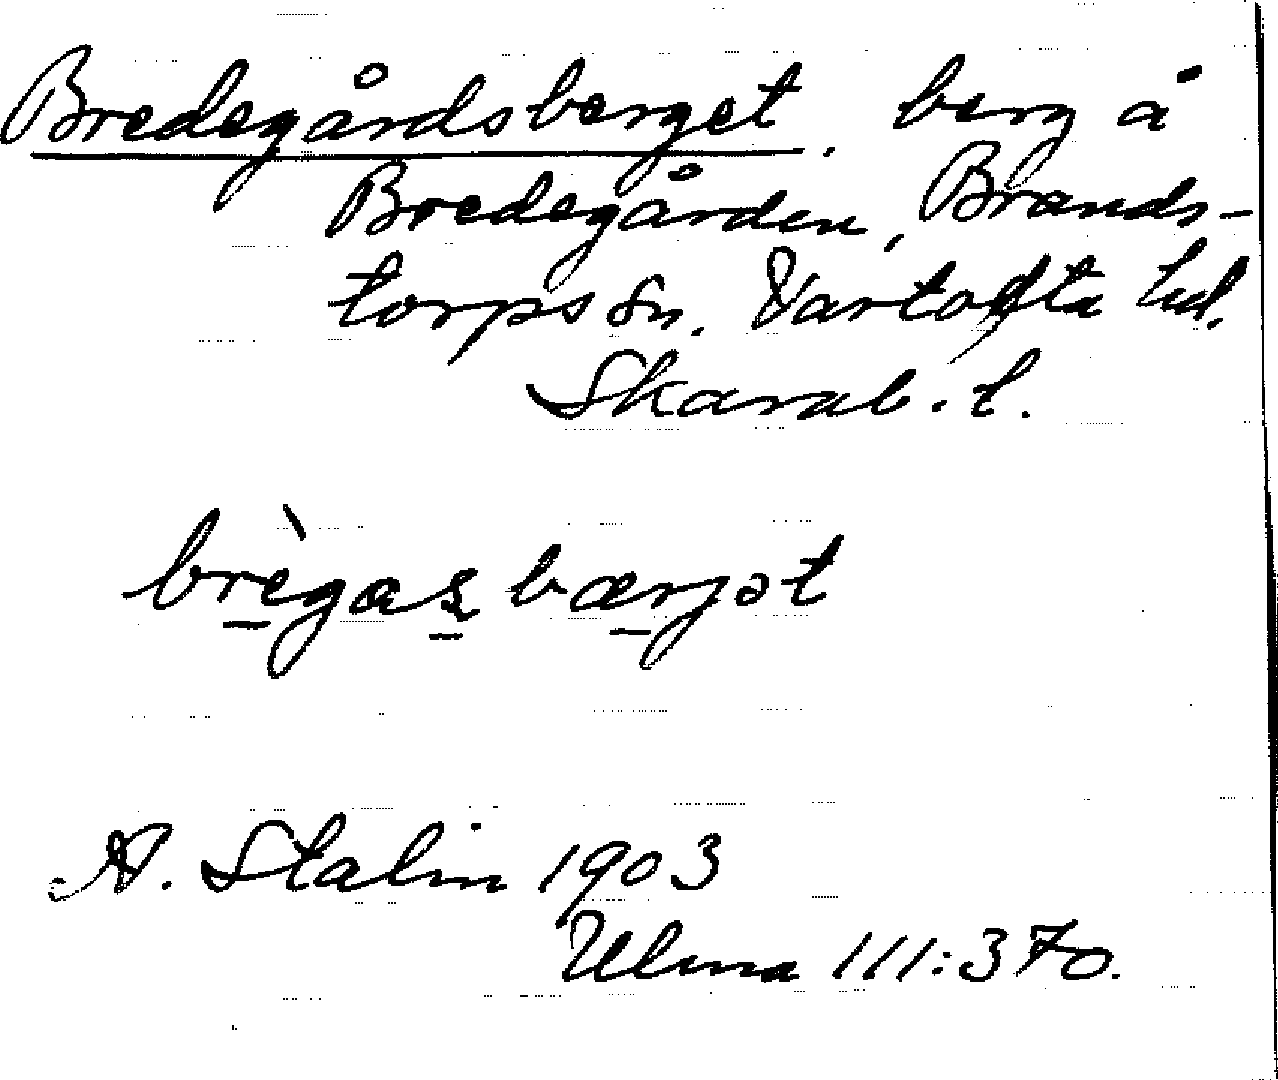 Bredegårdsberget. berg å
Bredegården, Brands-
torps sn. Vartofta hd.
Skarab. l.
brègas bærjət
A. Stalin 1903
Ulma 111:370.